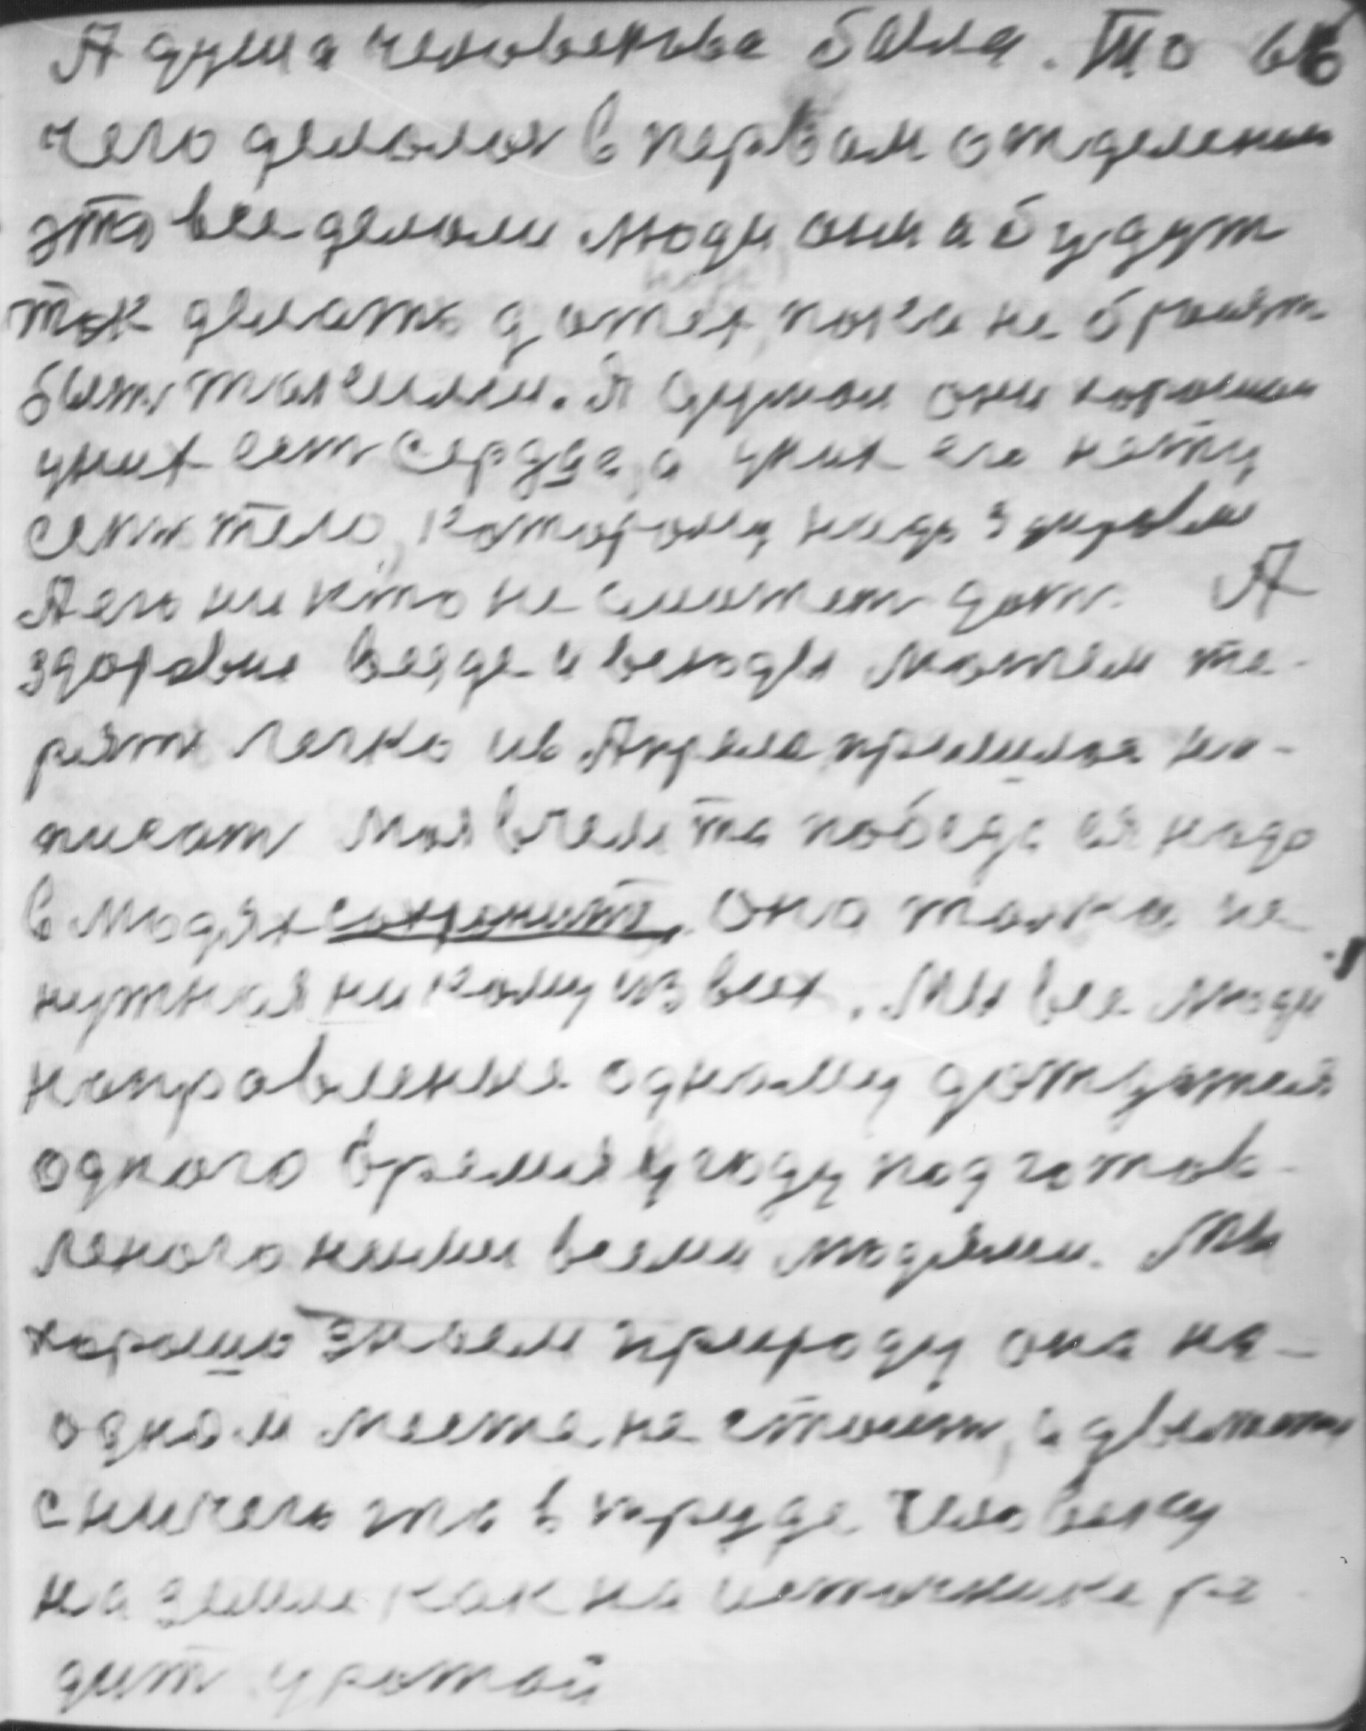 А душа человечества была. То
чего делалось в первом отделении
это все делали люди, они а будут
так делать до тех, пока не бросят
быть такими. Я думаю они хорошии
у них ест сердце, а у них его нету
есть тело, которому надо здоровие
А его ни кто не сможет дать. А
здоровие везде и всюды можем те-
рять легко
писат моя в чем та победа ея надо
в людях сохранить. Она только не
нужная ни кому из всех. Мы все люди
направление одному
одного время году подготов-
леного нами всеми людями. Мы
хорошо знаем природу она на-
одном месте не стоит, а
с ничего это в природе человеку
на земле как на источнике ро
дит урожай